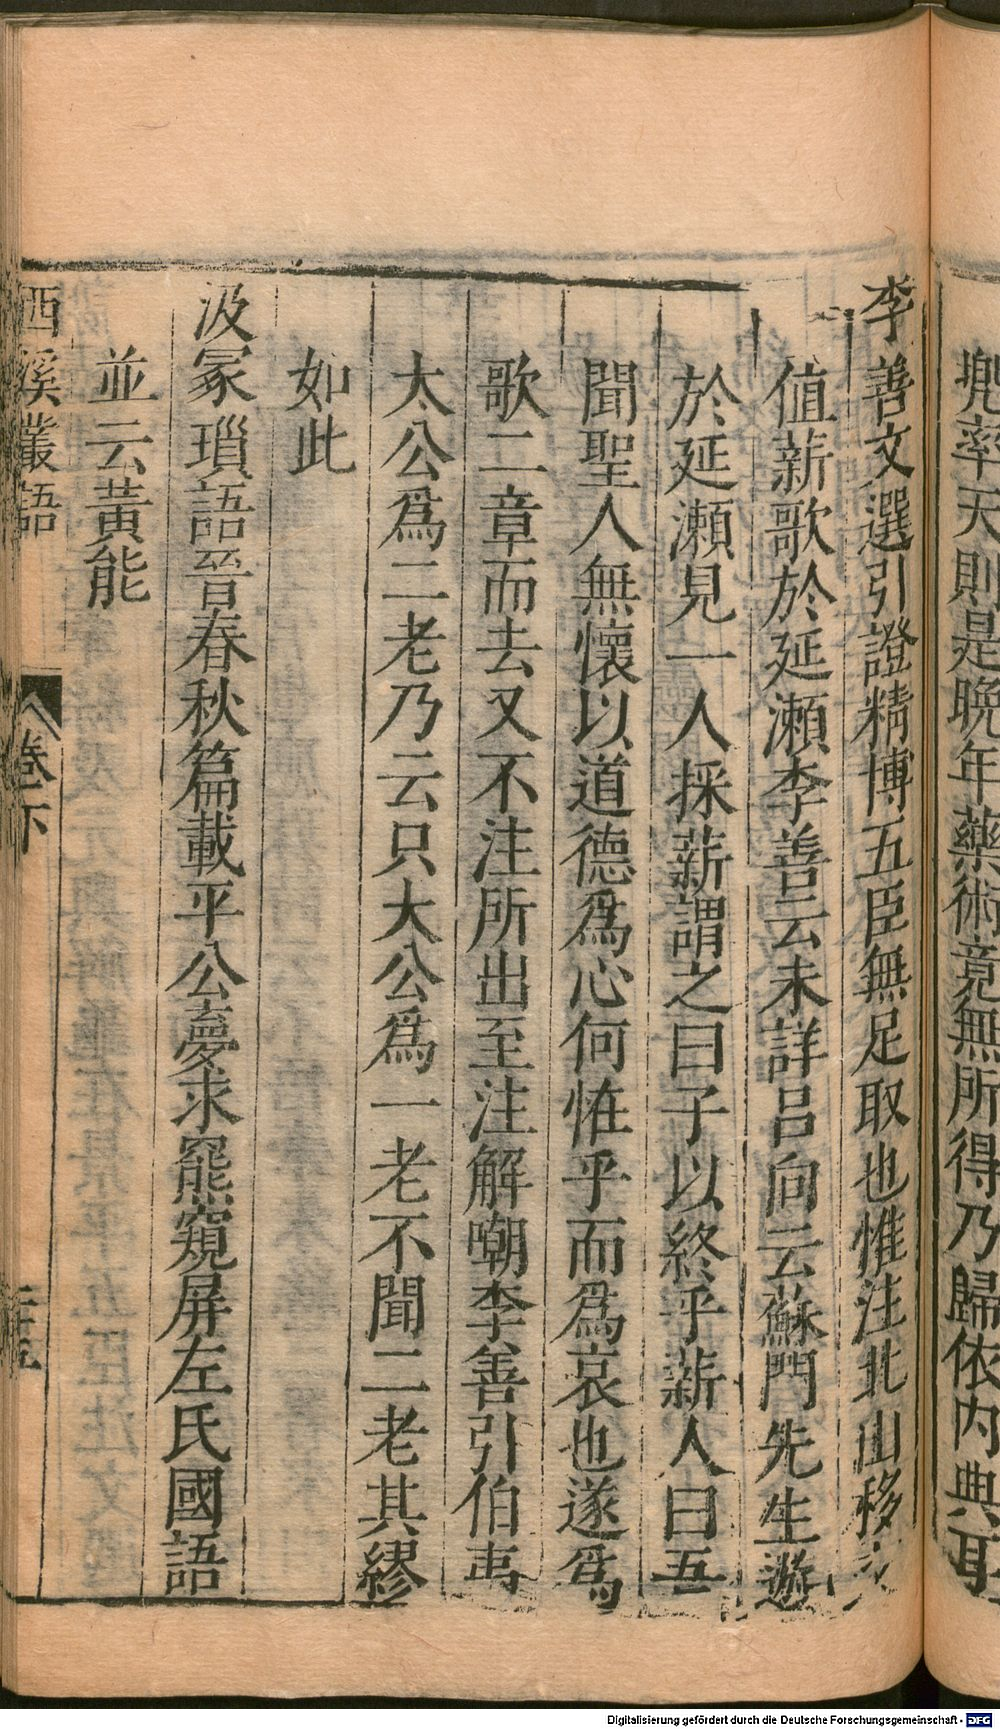 兠率天則是晚年藥術竟無所得乃歸依內典耳
李善文選引證精博五臣無足取也惟注北山移文
值薪歌於延瀨李善云未詳吕向云蘇門先生遊
於延瀨見一人採薪謂之曰子以終乎薪人曰吾
聞聖人無懷以道德爲心何恠乎而爲哀也遂爲
歌二章而去又不注所出至注解嘲李善引伯夷
太公爲二老乃云只大公爲一老不聞二老其繆
如此
汲冢瑣語晉春秋篇載平公夢朱羆窺屏左氏國語
並云黃能
西溪叢語 卷下 二十五
Digitalisierung gefördert durch die Deutsche Forschungsgemeinschaft - DFG